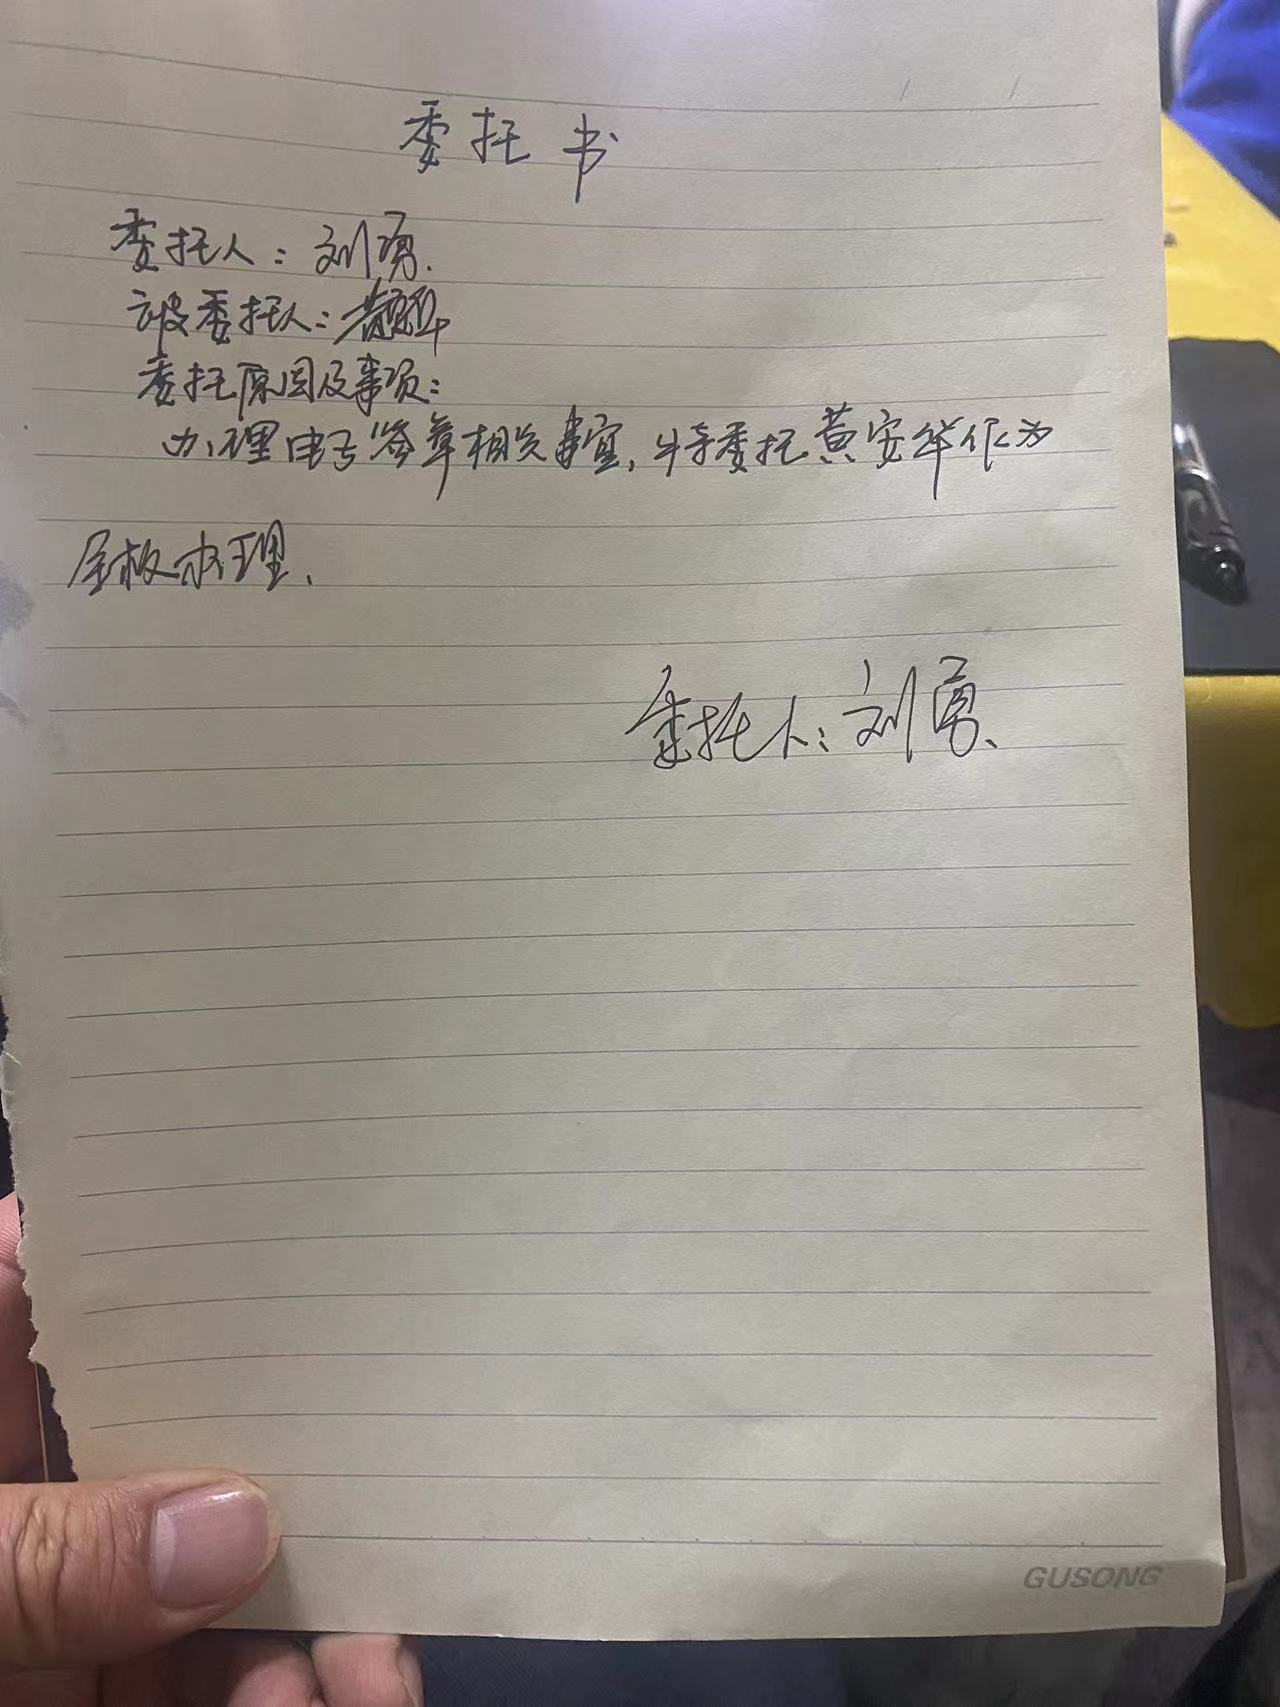 委托书
委托人：刘勇.
被委托人：
委托原因及事项：
办理电子签章相关事宜，特委托黄安华作为
全权办理.
委托人：刘勇、
GUSONG